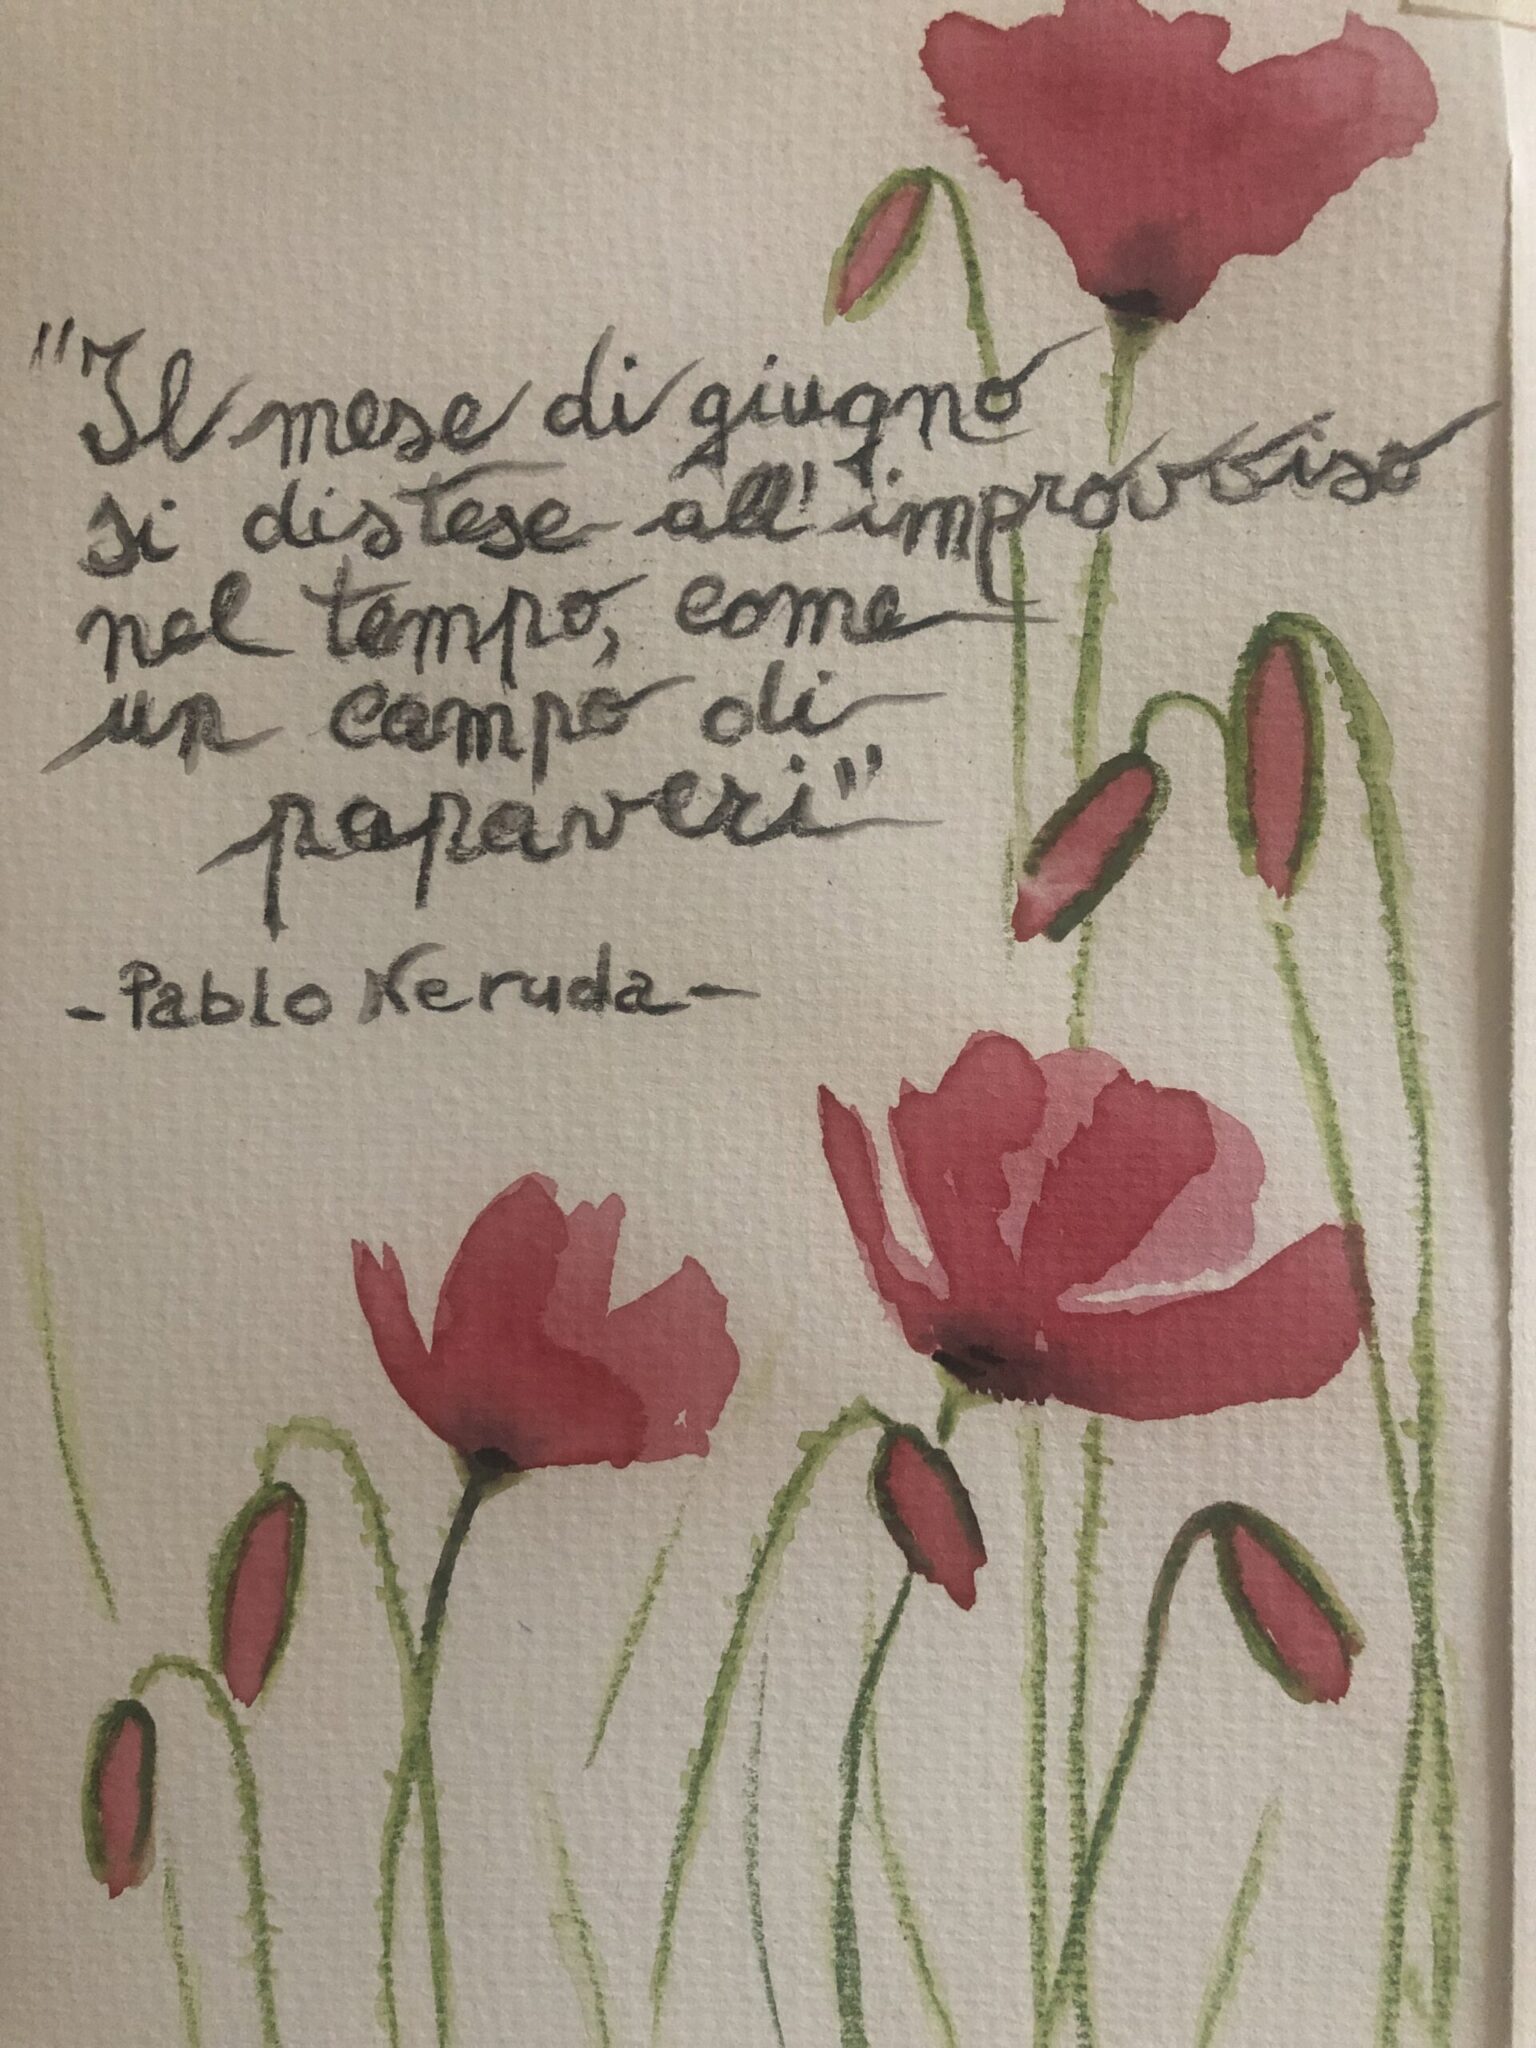 "Il mese di giugno
si distese all'improvviso
nel tempo, come
un campo di
papaveri"
- Pablo Neruda -